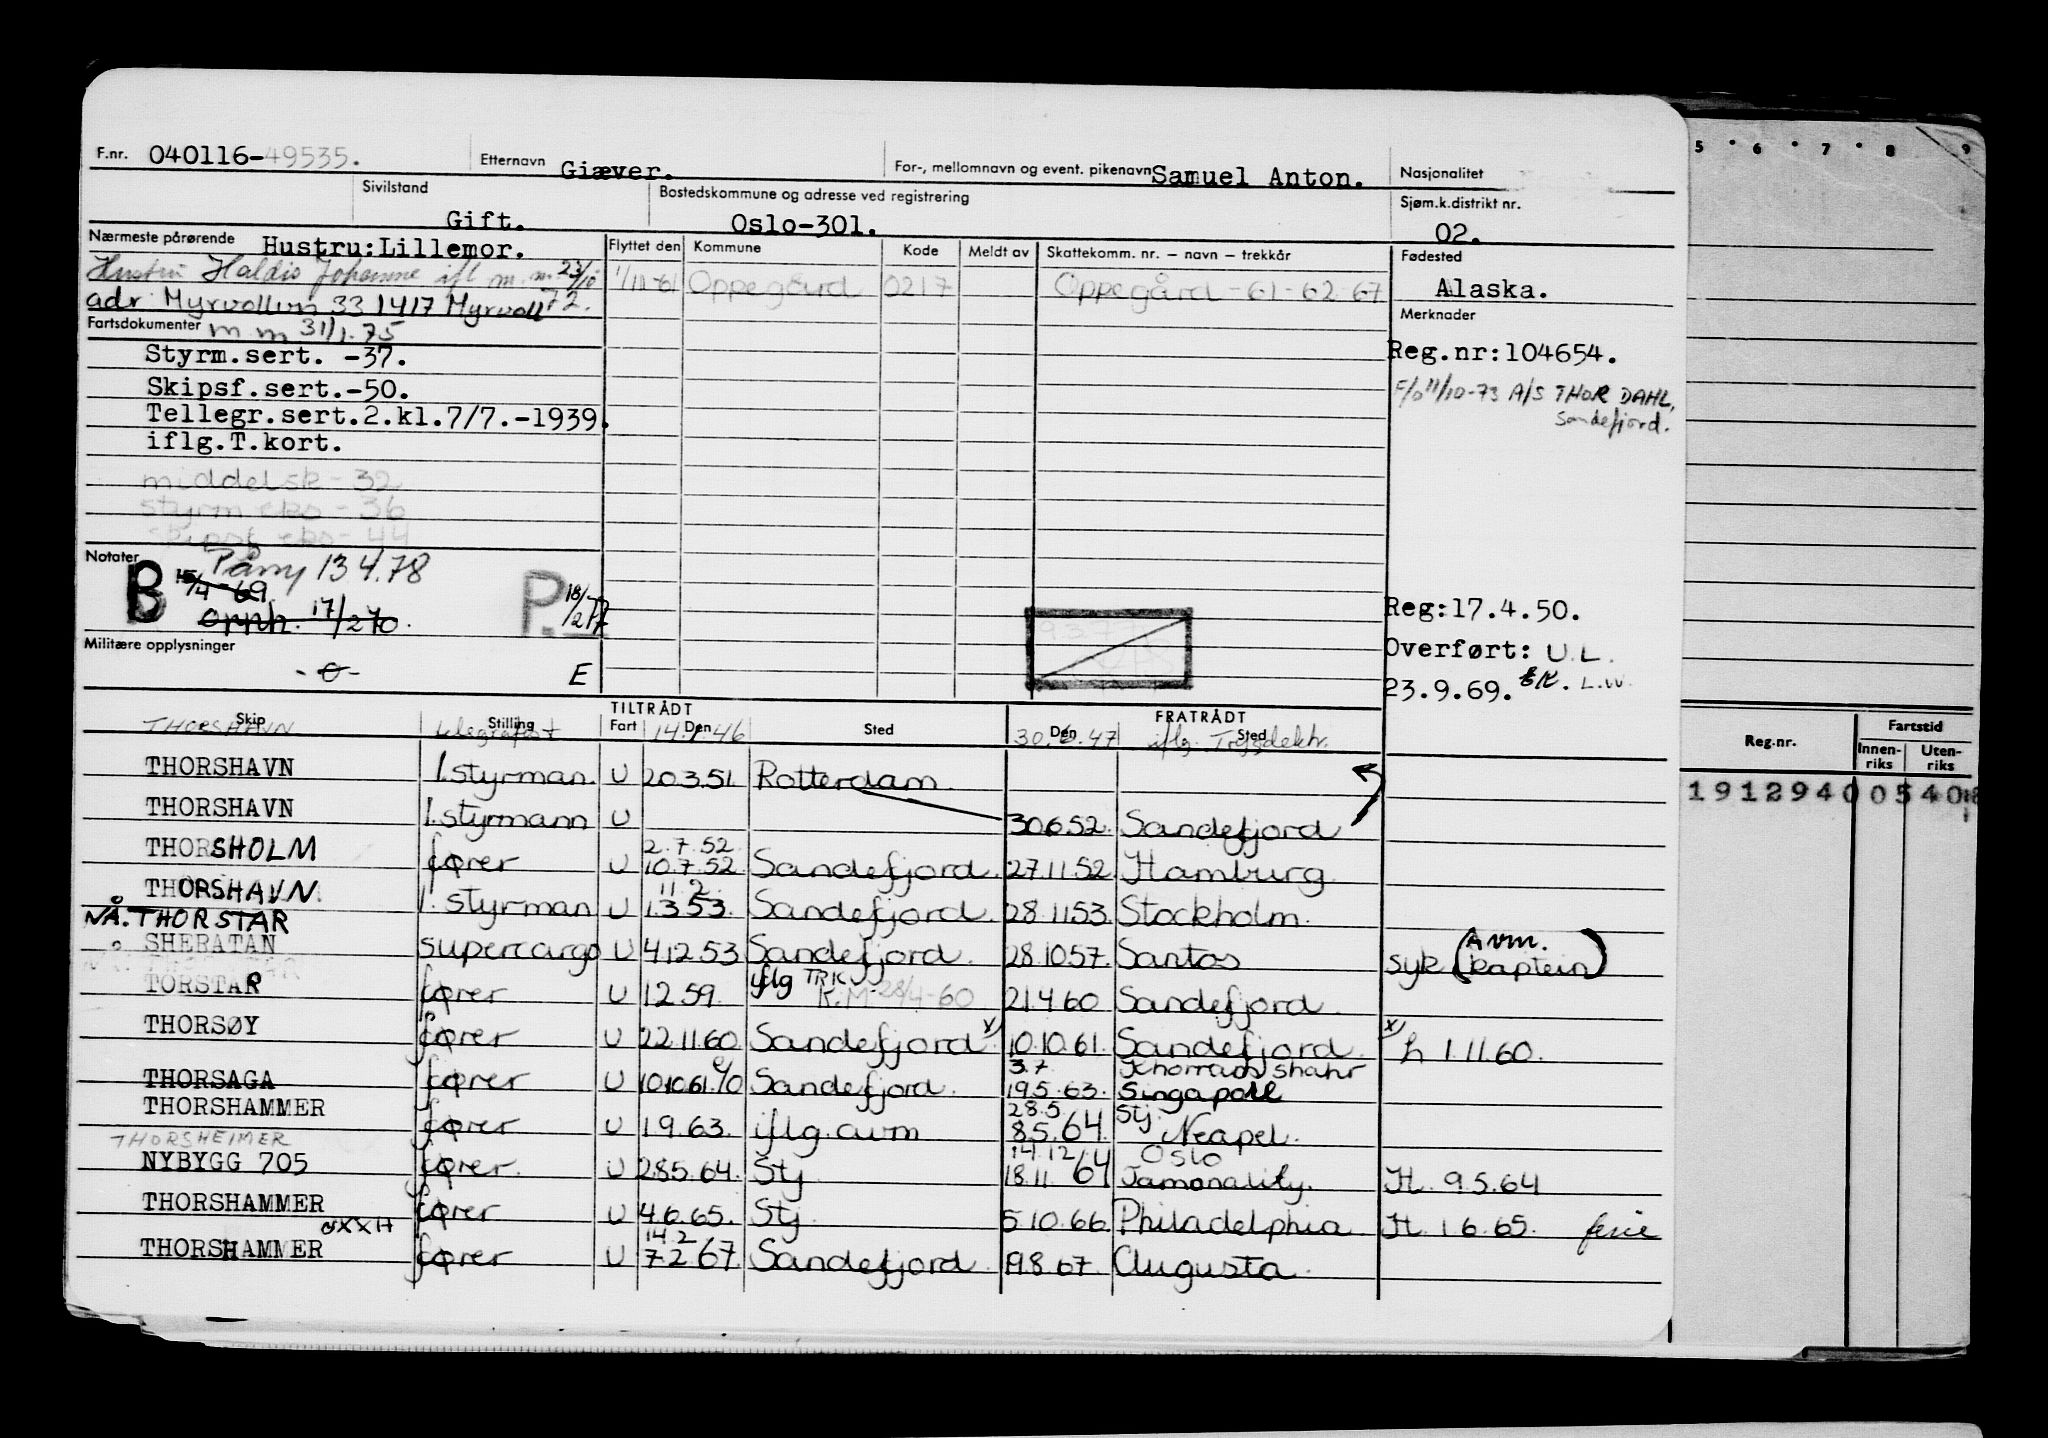 F.nr. 040116-49535. Etternavn Giæver. For-, mellomnavn og event. pikenavn Samuel Anton. Nasjonalitet
Sivilstand Gift. Bostedskommune og adresse ved registrering Oslo-301. Sjøm.k.distrikt nr. 02.
Nærmeste pårørende Hustru:Lillemor. Flyttet den Kommune Kode Meldt av Skattekomm. nr. – navn – trekkår Fødested
Hustru Haldis Johanne ifl m.m. 23/10 72. 1/11-61 Oppegård 0217 Oppegård-61-62-67 Alaska.
adr. Myrvollvn 33 1417 Myrvoll
Fartsdokumenter m m 31/1.75 Merknader
Styrm.sert. -37. Reg.nr:104654.
Skipsf.sert.-50. F/O 11/10-73 A/S THOR DAHL,
Tellegr.sert.2.kl.7/7.-1939. Sandefjord.
iflg.T.kort.
middelsk-32
styrm eks-36
eks-44
Notater B Påmy 13 4.78
15/4-69 P. 18/2 77
17/2 70. Reg:17.4.50.
Militære opplysninger Overført: U.L.
-0- E 23.9.69. L.W.
Skip Stilling TILTRÅDT Fart Den Sted FRATRÅDT Den Sted Reg.nr. Fartstid Innenriks Utenriks
THORSHAVN telegrafist 46 30.6.47 iflg. Trygdektr.
THORSHAVN 1.styrman. U 20.3.51. Rotterdam 191294
THORSHAVN 1.styrmann U 30.6.52. Sandefjord
THORSHOLM fører U 2.7.52 10.7.52 Sandefjord. 27.11.52 Hamburg
THORSHAVN 1.styrman U 11.2. 1.3.53. Sandefjord. 28.11.53. Stockholm.
NÅ.THORSTAR
SHERATAN supercargo U 4.12.53 Sandefjord. 28.10.57. Santos syk (Avm. kaptein)
TORSTAR fører U 1.2.59. iflg TRK K.M. 28/4-60 21.4.60 Sandefjord
THORSØY fører U 22.11.60. Sandefjord x) 10.10.61. Sandefjord. x) h 1.11.60.
THORSAGA fører U 10.10.61. Sandefjord. 3.7 19.5.63. Khorramshahr Singapore
THORSHAMMER fører U 1.9.63. iflg. avm 28.5. 8.5.64. Stj. Neapel.
THORSHEIMER
NYBYGG 705 fører. U 28.5.64. Stj 14.12. 18.11.64 Oslo H. 9.5.64
THORSHAMMER fører U 4.6.65. Stj 5.10.66. Philadelphia H. 1.6.65. ferie
THORSHAMMER fører U 14.2 7.2.67. Sandefjord. 19.8.67. Augusta.
5 6 7 8 9